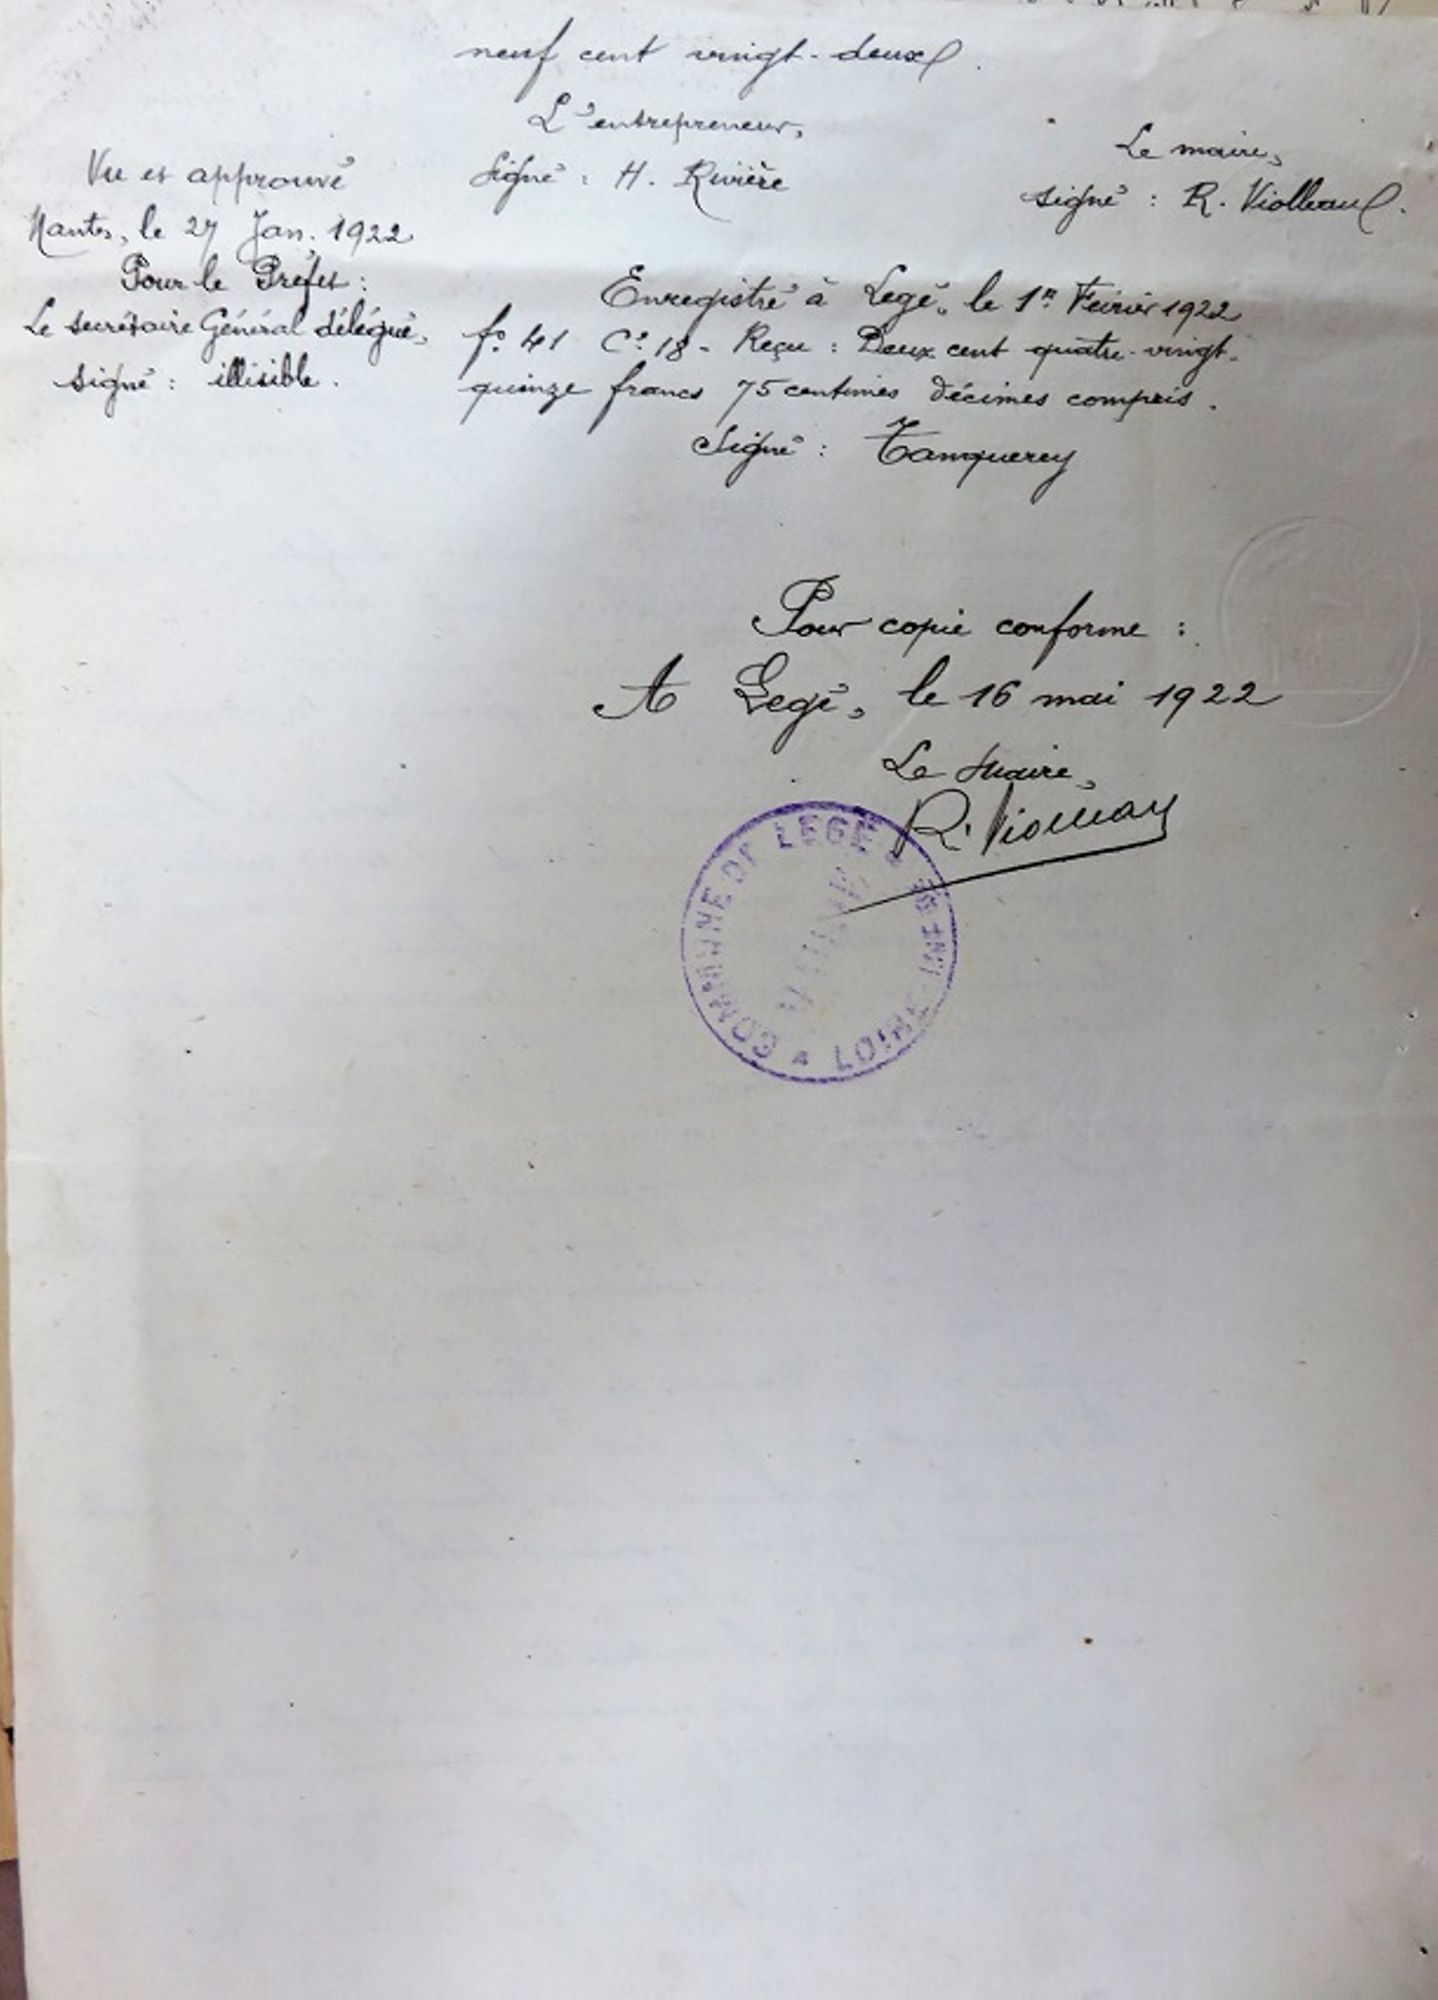 neuf cent vingt-deux.
L'entrepreneur,
signé : H. Rivière
Le maire,
signé : R. Violleau.
Vu et approuvé
Nantes, le 27 Jan. 1922
Pour le Préfet :
Le secrétaire Général délégué,
signé : illisible.
Enregistré à Legé, le 1er Février 1922
fo 41 Ce 18 - Reçu : Deux cent quatre-vingt-
quinze francs 75 centimes décimes compris.
Signé : Tanquerey
Pour copie conforme :
A Legé, le 16 mai 1922
Le Maire,
R. Violleau
COMMUNE DE LEGÉ * LOIRE-INFRE *